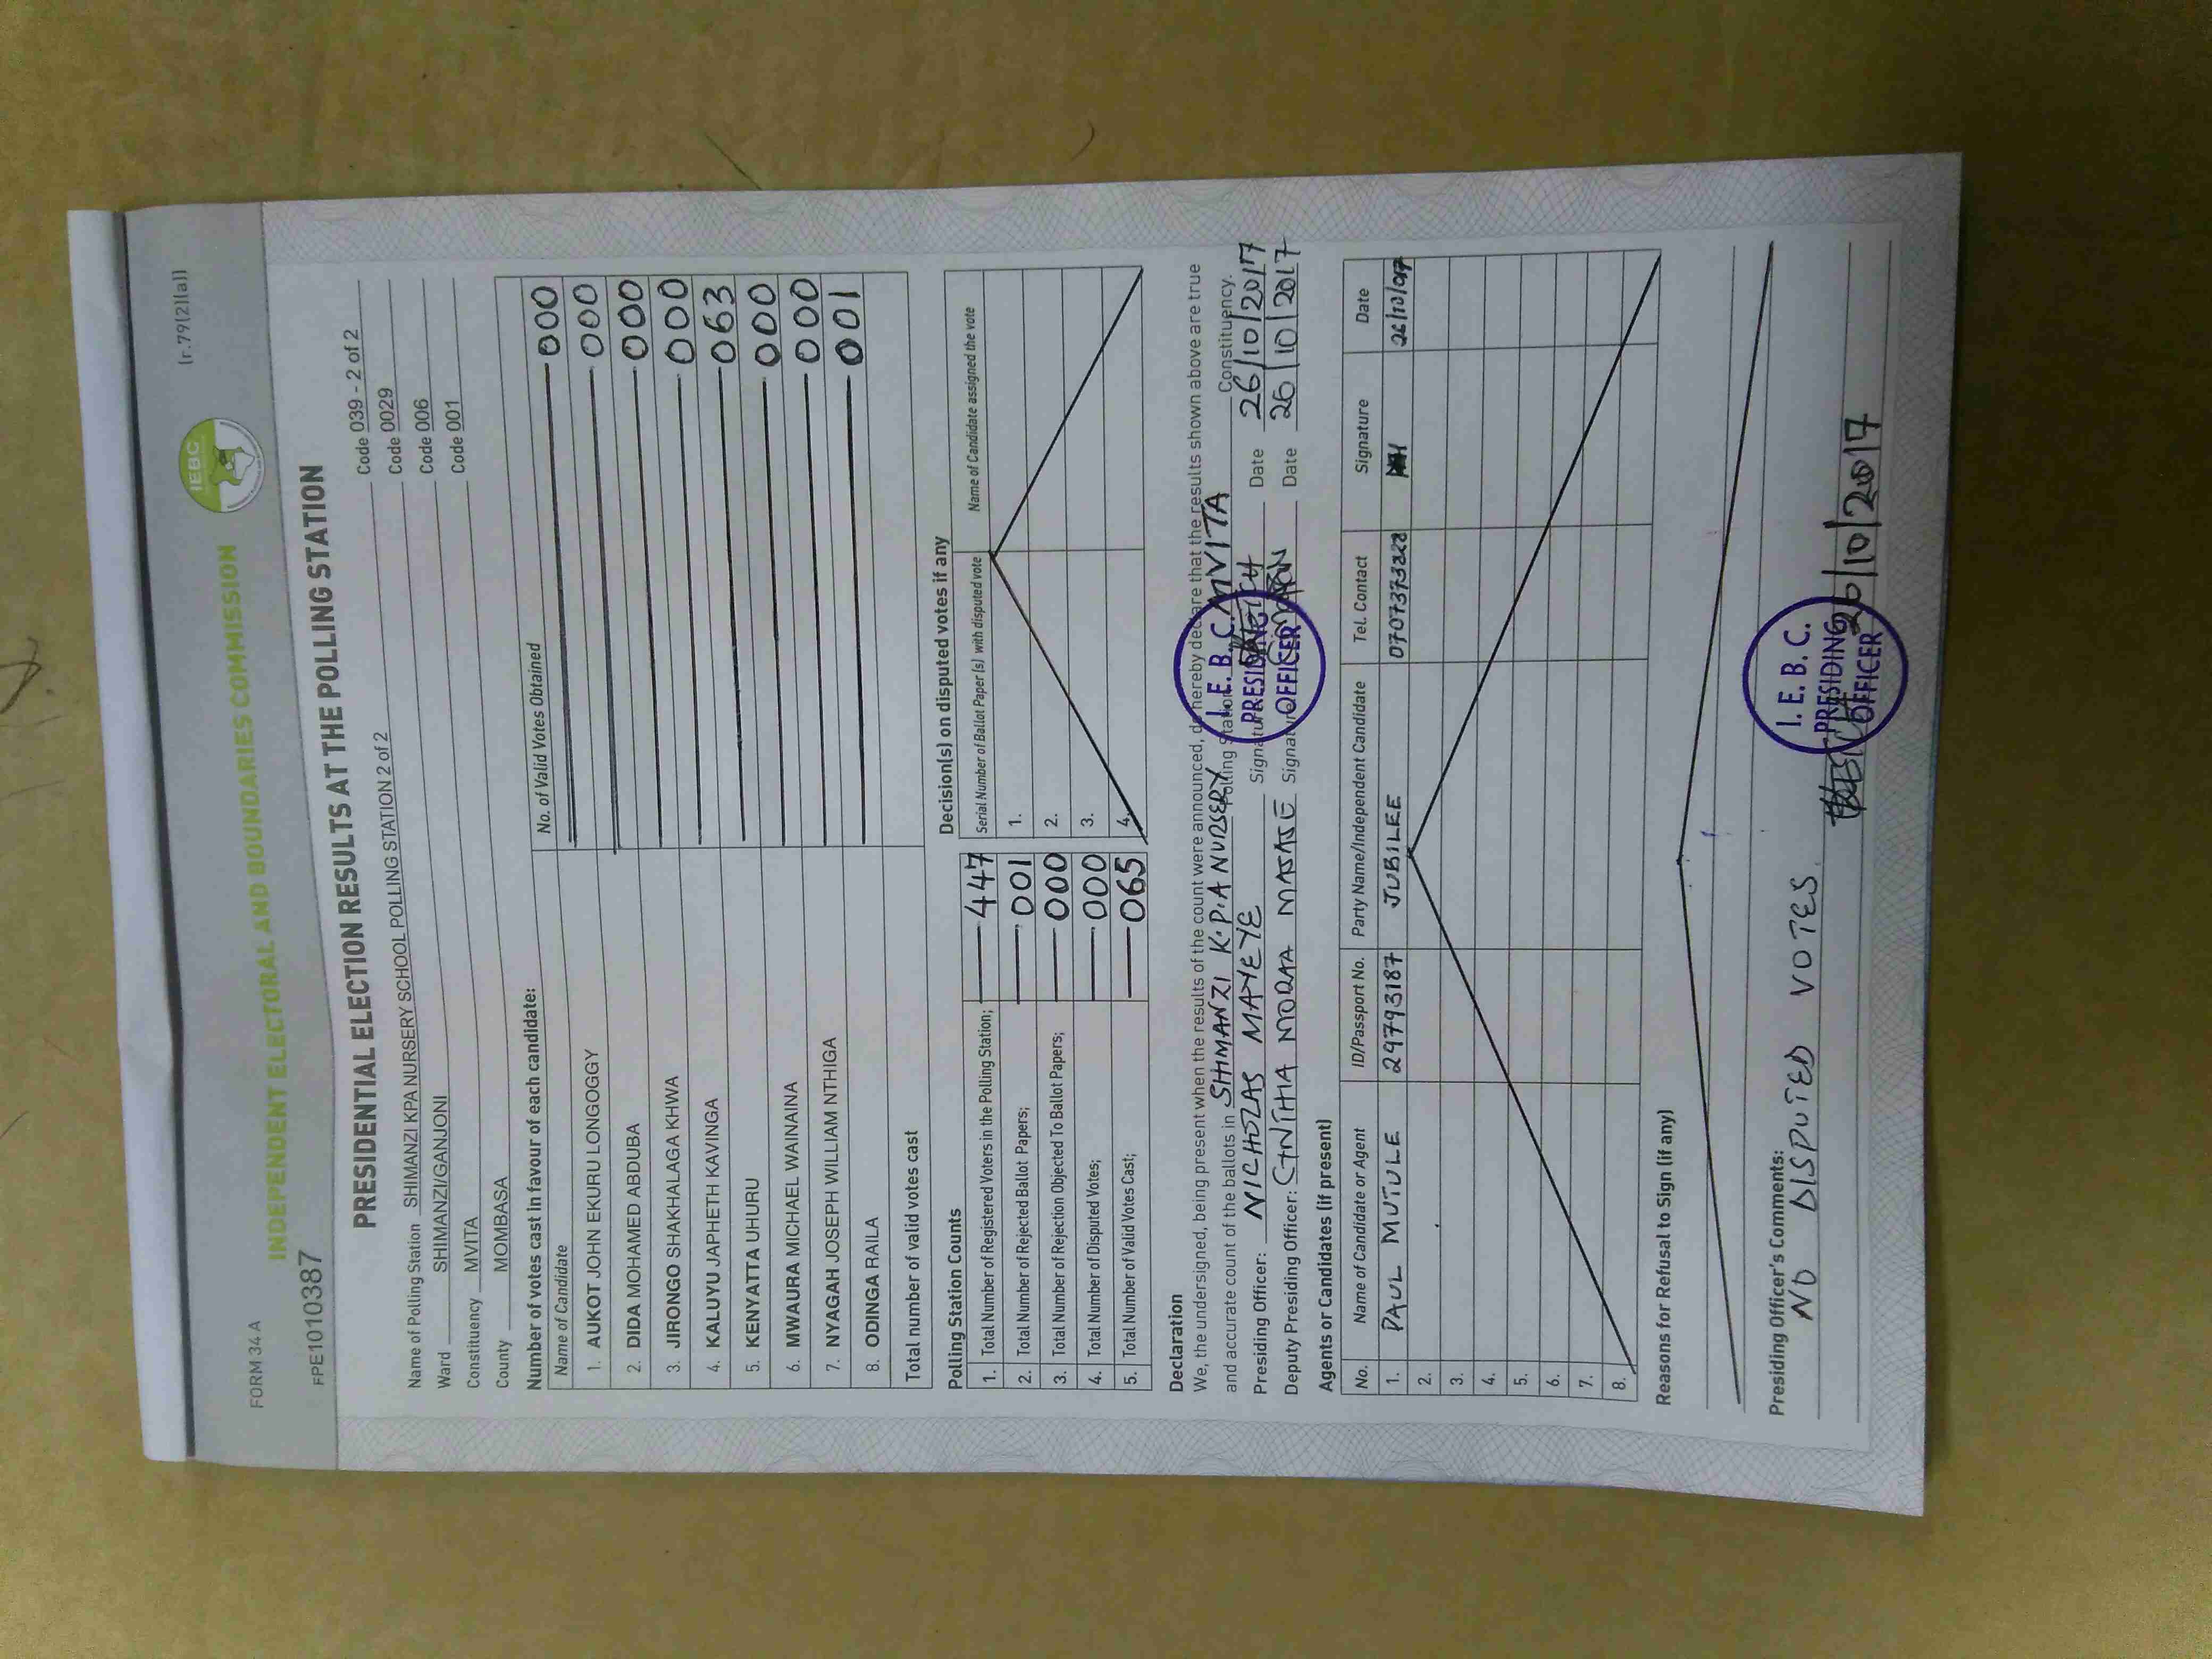 FORM 34 A
[r.79(2)(a)]
IEBC
INDEPENDENT ELECTORAL AND BOUNDARIES COMMISSION
FPE1010387
PRESIDENTIAL ELECTION RESULTS AT THE POLLING STATION
Name of Polling Station SHIMANZI KPA NURSERY SCHOOL POLLING STATION 2 of 2 Code 039 - 2 of 2
Ward SHIMANZI/GANJONI Code 0029
Constituency MVITA Code 006
County MOMBASA Code 001
Number of votes cast in favour of each candidate:
Name of Candidate No. of Valid Votes Obtained
1. AUKOT JOHN EKURU LONGOGGY 000
2. DIDA MOHAMED ABDUBA 000
3. JIRONGO SHAKHALAGA KHWA 000
4. KALUYU JAPHETH KAVINGA 000
5. KENYATTA UHURU 063
6. MWAURA MICHAEL WAINAINA 000
7. NYAGAH JOSEPH WILLIAM NTHIGA 000
8. ODINGA RAILA 001
Total number of valid votes cast
Polling Station Counts
1. Total Number of Registered Voters in the Polling Station; 447
2. Total Number of Rejected Ballot Papers; 001
3. Total Number of Rejection Objected To Ballot Papers; 000
4. Total Number of Disputed Votes; 000
5. Total Number of Valid Votes Cast; 065
Decision(s) on disputed votes if any
Serial Number of Ballot Paper (s) with disputed vote Name of Candidate assigned the vote
1.
2.
3.
4.
Declaration
We, the undersigned, being present when the results of the count were announced, do hereby declare that the results shown above are true
and accurate count of the ballots in SHIMANZI K.P.A NURSERY Polling Station MVITA Constituency.
Presiding Officer: NICHOLAS MAYEYE Signature Date 26/10/2017
Deputy Presiding Officer: CYNTHIA MORAA MASASE Signature Date 26/10/2017
I. E. B. C.
PRESIDING
OFFICER
Agents or Candidates (if present)
No. Name of Candidate or Agent ID/Passport No. Party Name/Independent Candidate Tel. Contact Signature Date
1. PAUL MUTULE 29793187 JUBILEE 0707373328 26/10/017
2.
3.
4.
5.
6.
7.
8.
Reasons for Refusal to Sign (if any)
Presiding Officer's Comments:
NO DISPUTED VOTES.
I. E. B. C.
PRESIDING
OFFICER
26/10/2017